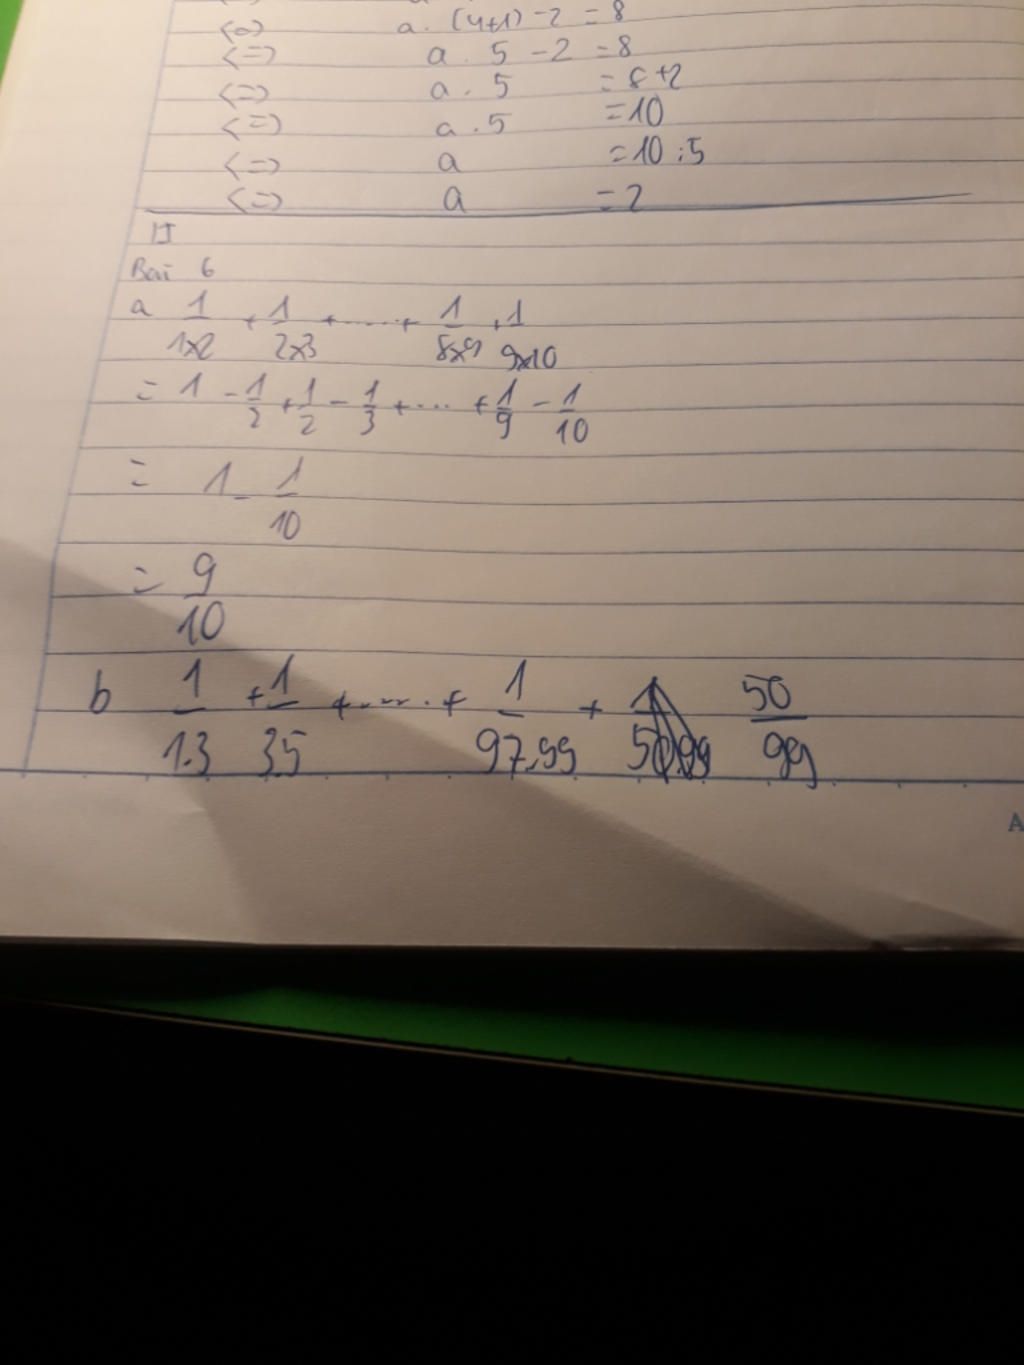 a. (4+1) - 2 = 8
<=> a . 5 - 2 = 8
<=> a . 5 = 8 + 2
<=> a . 5 = 10
<=> a = 10 : 5
<=> a = 2
Bai 6
a 1/1x2 + 1/2x3 + ..... + 1/8x9 + 1/9x10
= 1 - 1/2 + 1/2 - 1/3 + ... + 1/9 - 1/10
= 1 - 1/10
= 9/10
b 1/1.3 + 1/3.5 + ..... + 1/97.99 + 50/99
A